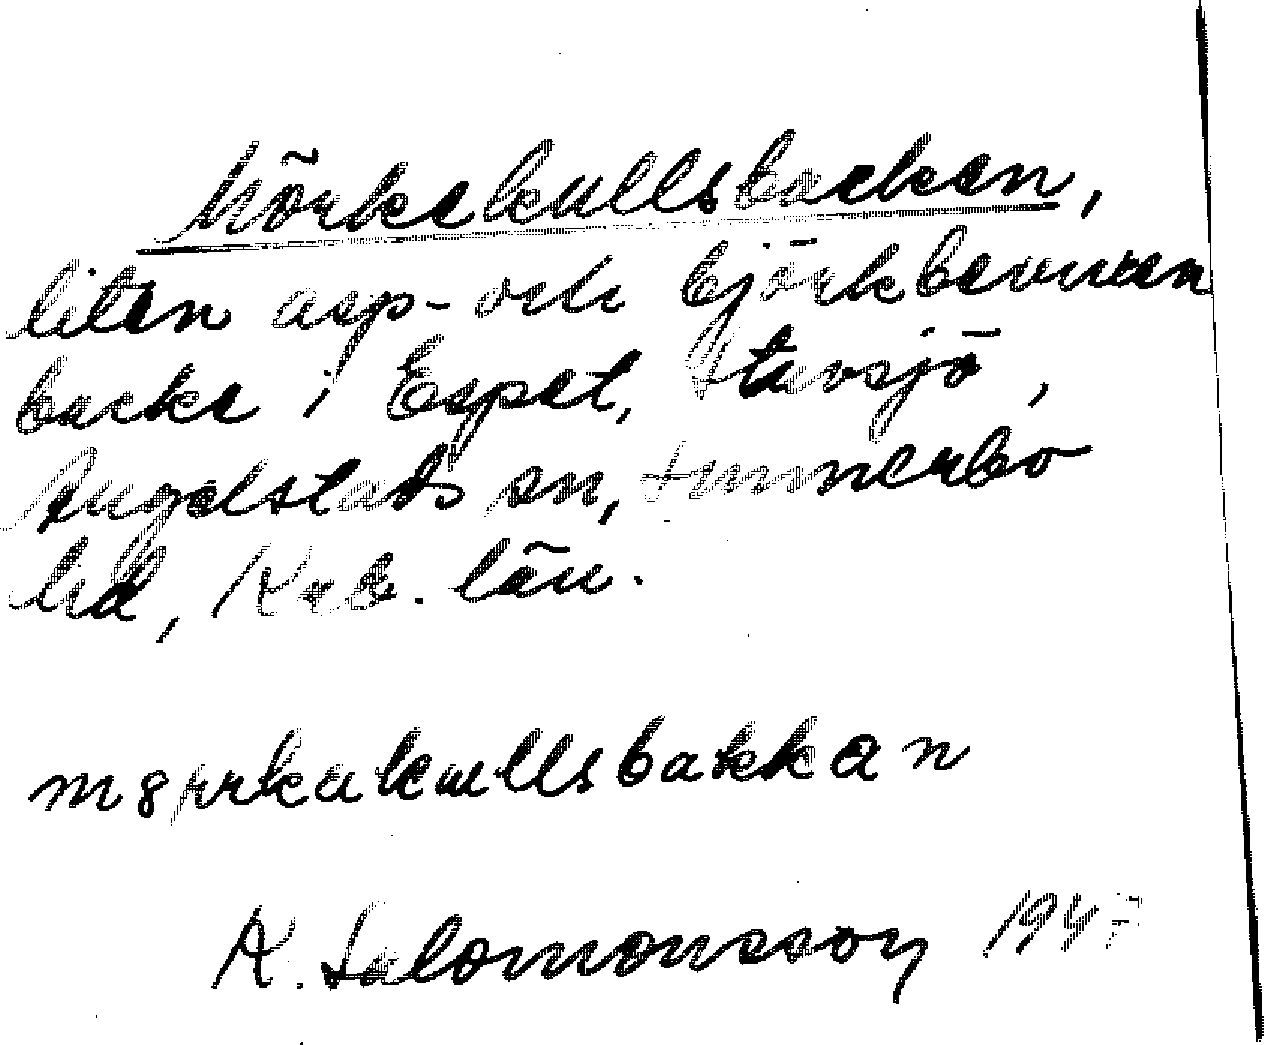 Mörkekullsbacken,
liten asp- och björkbevuxen
backe i Espet, Stavsjö,
Angelstads sn, Sunnerbo
hd, Krb. län.
mørrkakullsbakkan
K. Salomonsson 1947